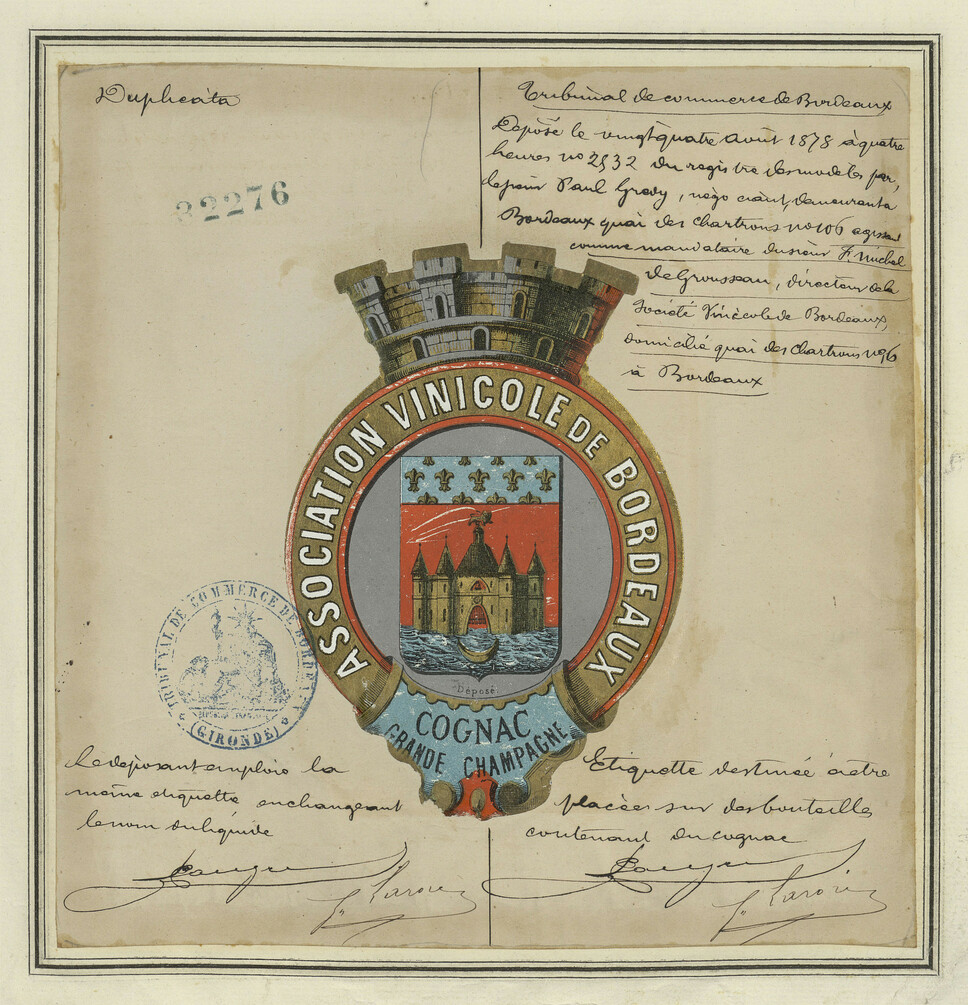 Duplicata
32276
Tribunal de commerce de Bordeaux
Déposé le vingtquatre Août 1878 à quatre
heures no 2832 du registre des modèles par
le sieur Paul Gredy, négociant, demeurant à
Bordeaux quai des Chartrons no 106 agissant
comme mandataire du sieur
de Grousseau, directeur de la
Société Vinicole de Bordeaux,
domicilié quai des Chartrons no 96
à Bordeaux
ASSOCIATION VINICOLE DE BORDEAUX
Déposé
COGNAC
GRANDE CHAMPAGNE
TRIBUNAL DE COMMERCE DE BORDEAUX
(GIRONDE)
Le déposant emploie la
même étiquette en changeant
le nom du liquide
Etiquette destinée à être
placées sur des bouteilles
contenant du cognac